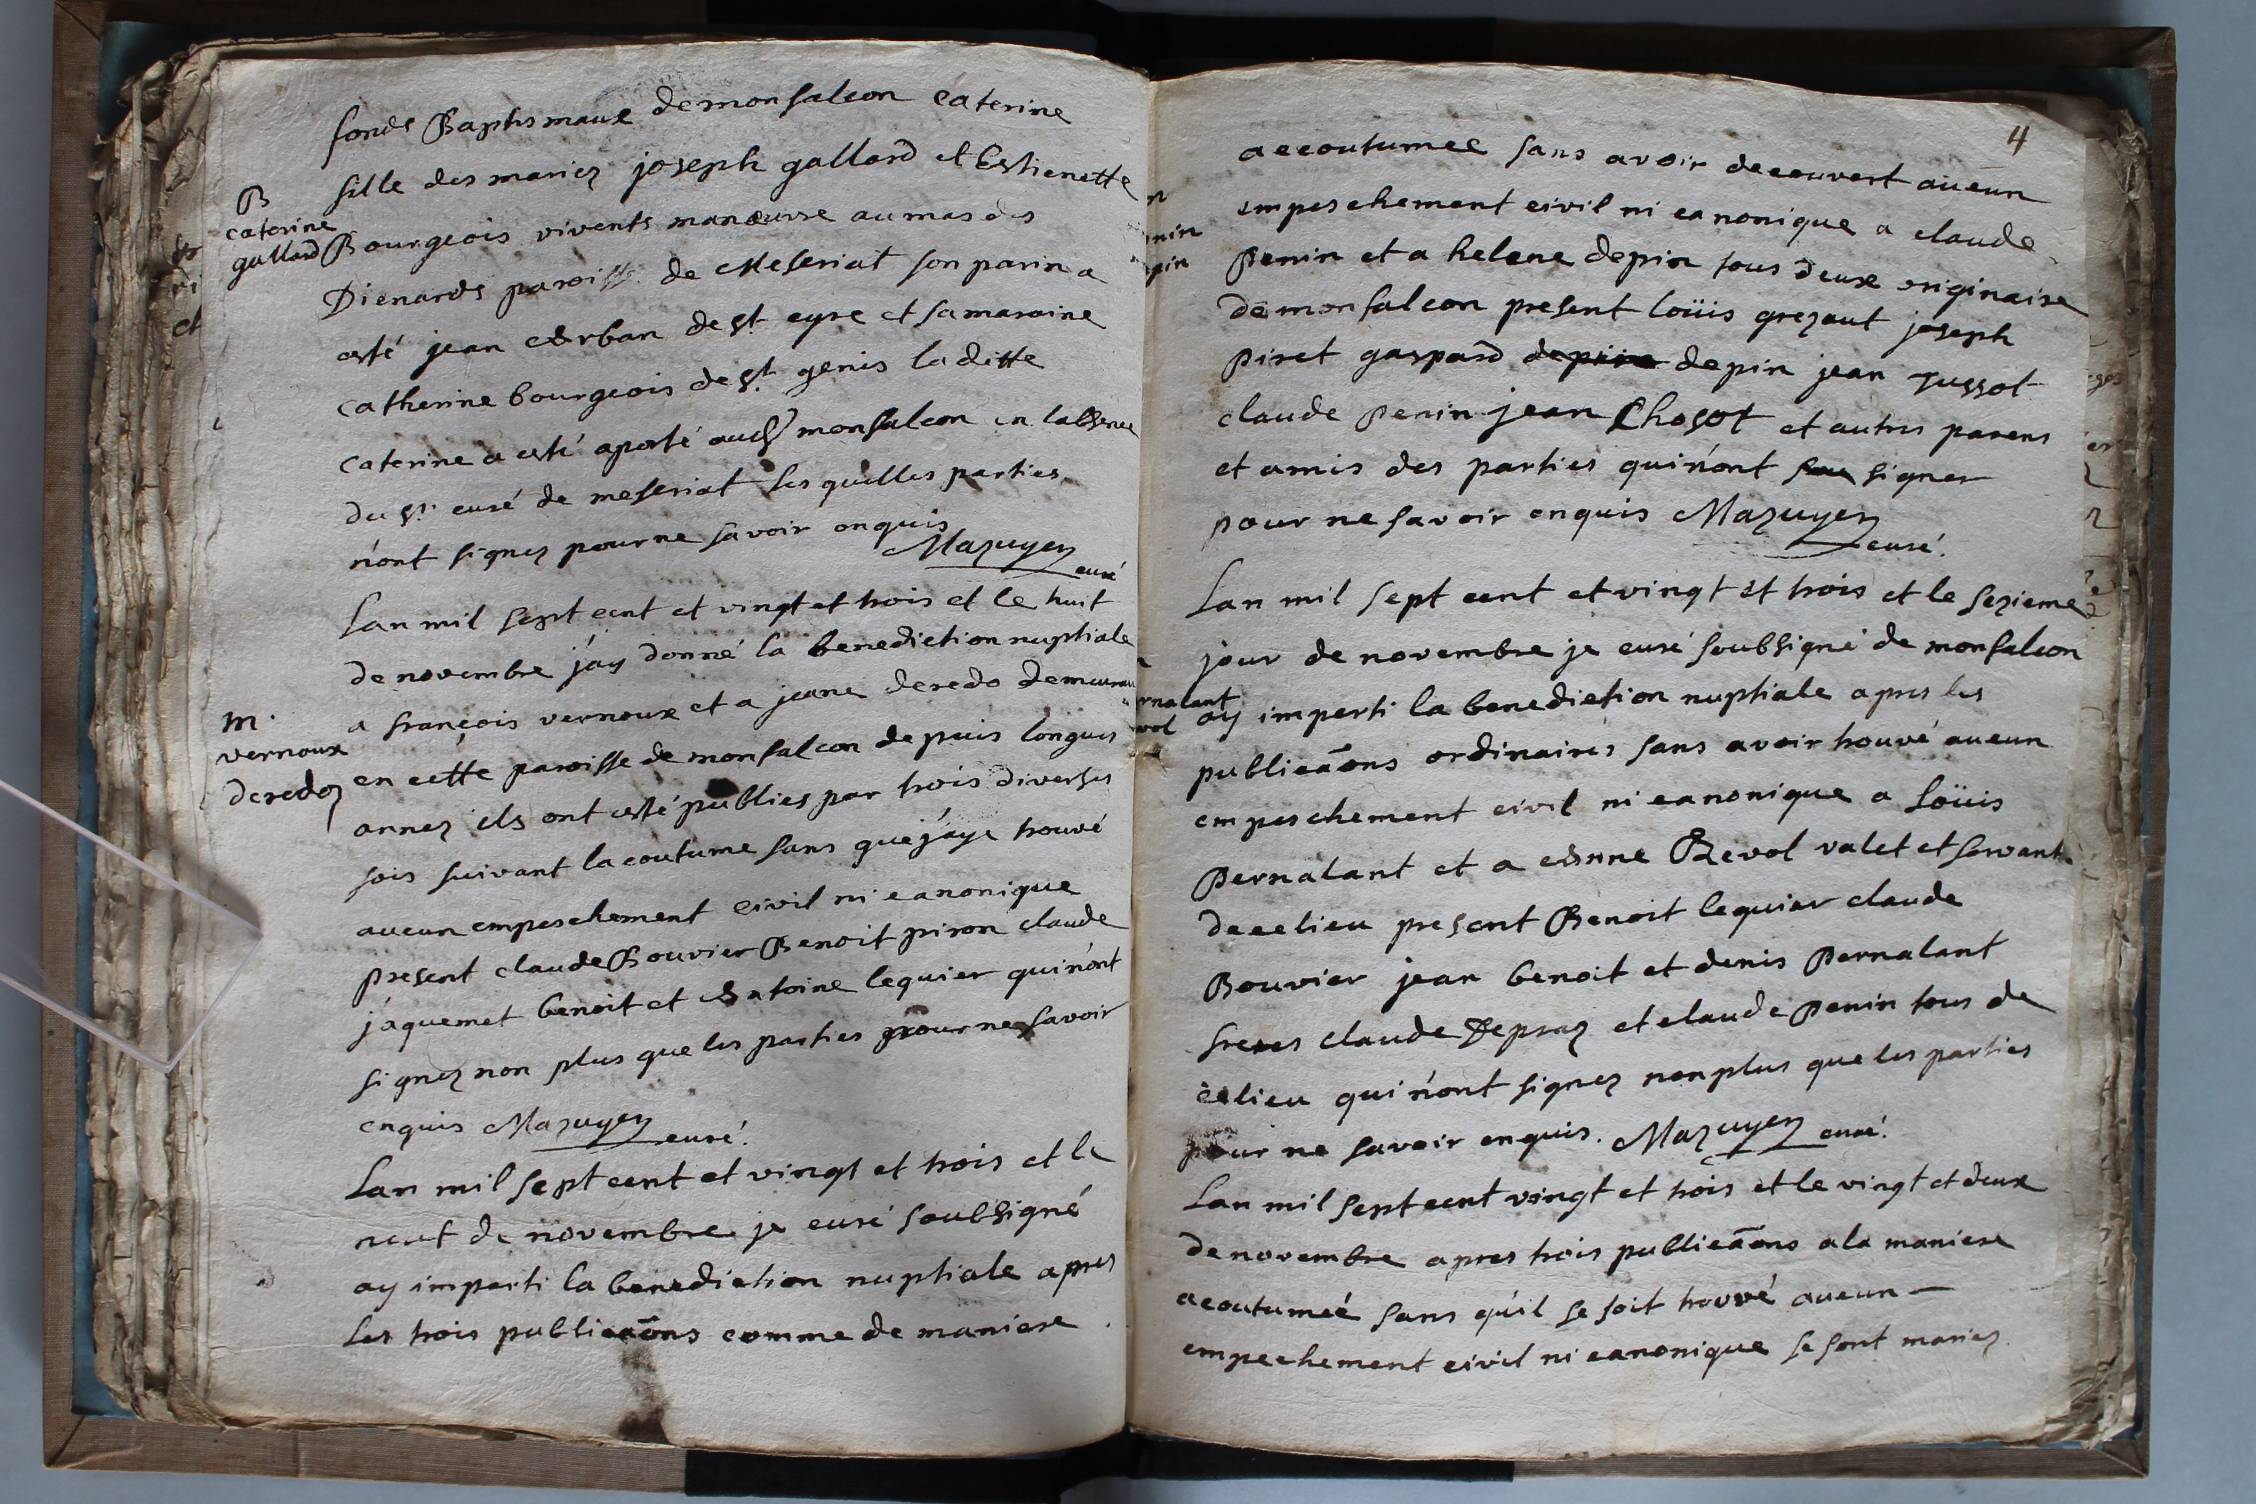 fonds Baptismaux de monfalcon caterine
B
caterine
gallard
fille des mariez joseph gallard et Estienette
Bourgeois vivents manœuvre au mas des
Dienards paroisse de Meseriat son parin a
esté jean Urban de St. eyre et sa maraine
catherine bourgeois de St. genis la ditte
caterine a esté aporté audt monfalcon en labsence
du Sr. curé de meseriat les quelles parties
n'ont signez pour ne savoir enquis
Mazuyer curé
Lan mil sept cent et vingt et trois et le huit
de novembre j'ay donné la benediction nuptiale
m.
vernoux
deredoz
a françois vernoux et a jeane deredo demeurau
en cette paroisse de monfalcon depuis longues
annez ils ont esté publies par trois diverses
fois suivant la coutume sans que j'aye trouvé
aucun empeschement civil ni canonique
present claude Bouvier Benoit piron claude
jaquemet benoit et Antoine lequier qui n'ont
signez non plus que les parties pour ne savoir
enquis Mazuyer curé.
Lan mil sept cent et vingt et trois et le
neuf de novembre je curé soubsigné
ay imparti la benediction nuptiale apres
les trois publicaõns comme de maniere
4
accoutumee sans avoir decouvert aucun
empeschement civil ni canonique a claude
Penin et a helene depin tous deux originaire
de monfalcon present loüis grezaut joseph
Piret gaspard depin depin jean Tussot
claude Penin jean Chosot et autres parens
et amis des parties qui n'ont sceu signer
pour ne savoir enquis Mazuyer
curé.
Lan mil sept cent et vingt et trois et le sezieme
jour de novembre je curé soubsigné de monfalcon
rnalant
vol
ay imparti la benediction nuptiale apres les
publicaõns ordinaires sans avoir trouvé aucun
empeschement civil ni canonique a Loüis
Pernalant et a Anne Revol valet et servante
de ce lieu present Benoit lequier claude
Bouvier jean benoit et denis Pernalant
freres claude Depraz et claude Penin tous de
ce lieu qui n'ont signez non plus que les parties
pour ne savoir enquis. Mazuyer curé.
Lan mil sept cent vingt et trois et le vingt et deux
de novembre apres trois publicaõns a la maniere
acoutumeé sans qu'il se soit trouvé aucun —
empechement civil ni canonique se sont mariez